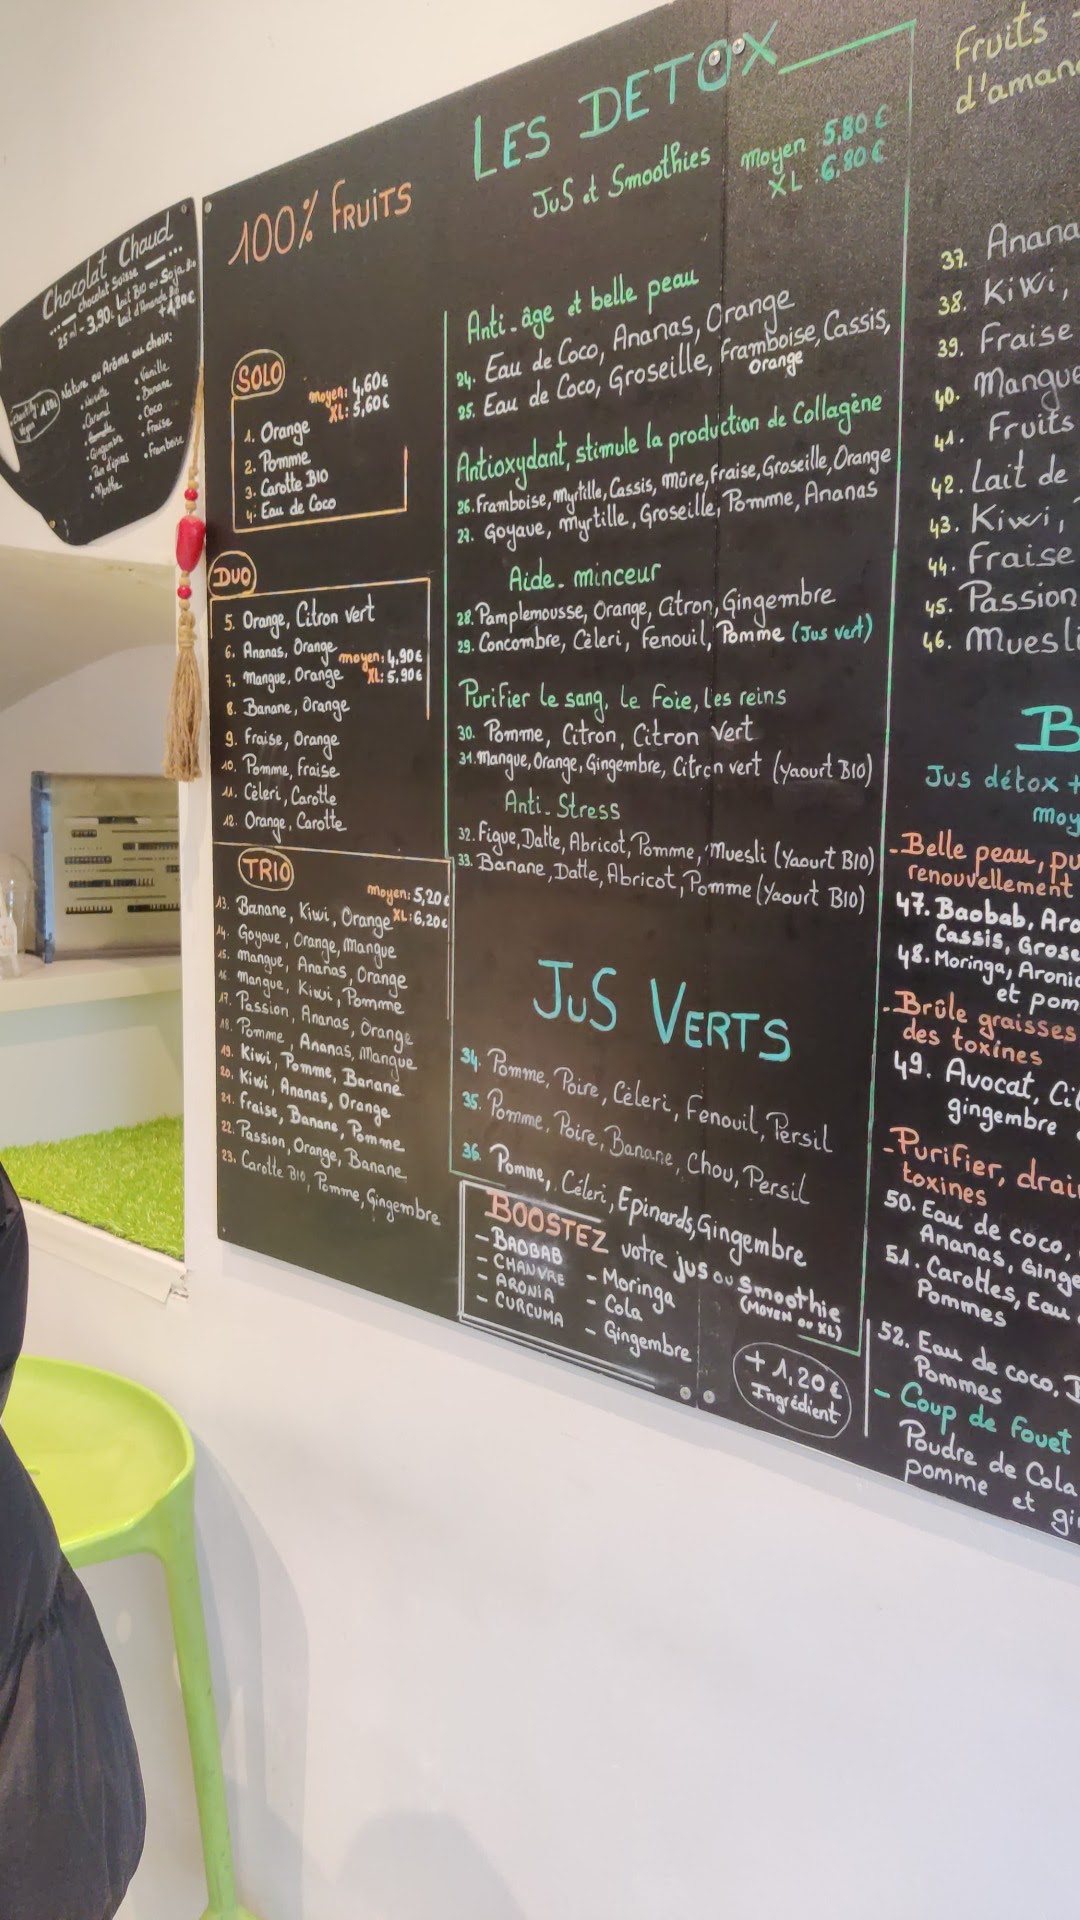 Chocolat Chaud
chocolat Suisse
25 ml - 3,90€ lait BIO ou Soja Bio
lait d'Amande Bio
+ 1,20€
Nature ou Arôme au choix:
Noisette
Caramel
Gingembre
Pain d'épices
Menthe
Vanille
Banane
Coco
Fraise
Framboise
100% FRUITS
SOLO
moyen: 4,60€
XL: 5,60€
1. Orange
2. Pomme
3. Carotte BIO
4. Eau de Coco
DUO
5. Orange, Citron vert
6. Ananas, Orange
moyen: 4,90€
XL: 5,90€
7. Mangue, Orange
8. Banane, Orange
9. Fraise, Orange
10. Pomme, Fraise
11. Cèleri, Carotte
12. Orange, Carotte
TRIO
moyen: 5,20€
XL: 6,20€
13. Banane, Kiwi, Orange
14. Goyave, Orange, Mangue
15. Mangue, Ananas, Orange
16. Mangue, Kiwi, Pomme
17. Passion, Ananas, Orange
18. Pomme, Ananas, Mangue
19. Kiwi, Pomme, Banane
20. Kiwi, Ananas, Orange
21. Fraise, Banane, Pomme
22. Passion, Orange, Banane
23. Carotte BIO, Pomme, Gingembre
LES DETOX
Jus et Smoothies
Moyen : 5,80 €
XL : 6,80 €
Anti-âge et belle peau
24. Eau de Coco, Ananas, Orange
25. Eau de Coco, Groseille, Framboise, Cassis,
orange
Antioxydant, stimule la production de Collagène
26. Framboise, Myrtille, Cassis, Mûre, Fraise, Groseille, Orange
27. Goyave, Myrtille, Groseille, Pomme, Ananas
Aide-minceur
28. Pamplemousse, Orange, Citron, Gingembre
29. Concombre, Cèleri, Fenouil, Pomme (Jus vert)
Purifier le sang, le Foie, les reins
30. Pomme, Citron, Citron Vert
31. Mangue, Orange, Gingembre, Citron vert (Yaourt BIO)
Anti-Stress
32. Figue, Datte, Abricot, Pomme, Muesli (Yaourt BIO)
33. Banane, Datte, Abricot, Pomme (Yaourt BIO)
JUS VERTS
34. Pomme, Poire, Cèleri, Fenouil, Persil
35. Pomme, Poire, Banane, Chou, Persil
36. Pomme, Céleri, Epinards, Gingembre
BOOSTEZ votre jus ou Smoothie
(MOYEN ou XL)
- BAOBAB
- CHANVRE
- ARONIA
- CURCUMA
- Moringa
- Cola
- Gingembre
+ 1,20€
Ingrédient
Fruits
37. Anana
38. Kiwi,
39. Fraise
40. Mangue
41. Fruits
42. Lait de
43. Kiwi,
44. Fraise
45. Passion
46. Muesli
B
Jus détox +
moy
- Belle peau, pu
renouvellement
47. Baobab, Aro
Cassis, Grose
48. Moringa, Aronia
et pom
- Brûle graisses
des toxines
49. Avocat, Cit
gingembre
- Purifier, drai
toxines
50. Eau de coco,
Ananas, Ginge
51. Carottes, Eau
Pommes
52. Eau de coco,
Pommes
- Coup de Fouet
Poudre de Cola
pomme et gi